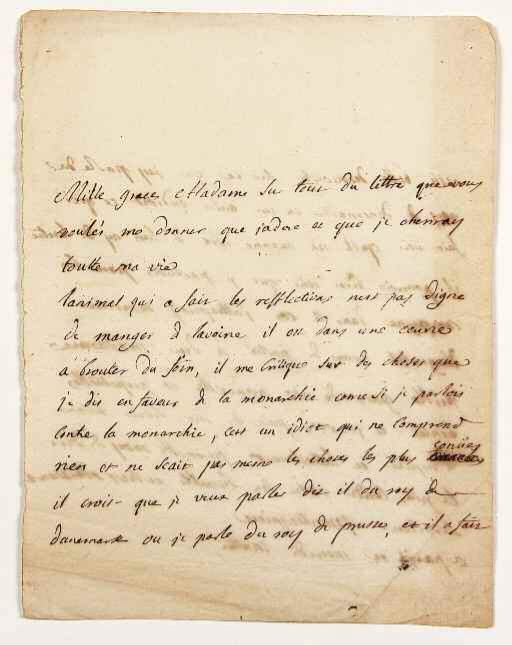 Mille graces Madame sur tout du lettre que vous
voulés me donner que jadore et que je cheriray
toutte ma vie
lanimal qui a fait les refflections nest pas digne
de manger de lavoine il est dans une
a brouter du foin, il me critique sur des choses que
je dis en faveur de la monarchie come si je parlois
contre la monarchie, cest un idiot qui ne comprend
rien et ne scait pas mesme les choses les plus conües
il crois que je veux parler dit il du roy de
danemark ou je parle du roy de prusse, et il a fait